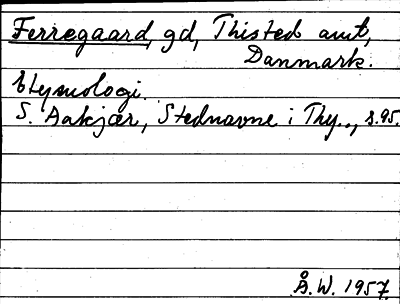 Ferregaard, gd, Thisted amt,
Danmark.
Etymologi.
S. Aakjær, Stednavne i Thy., s.95.
Å.W. 1957.